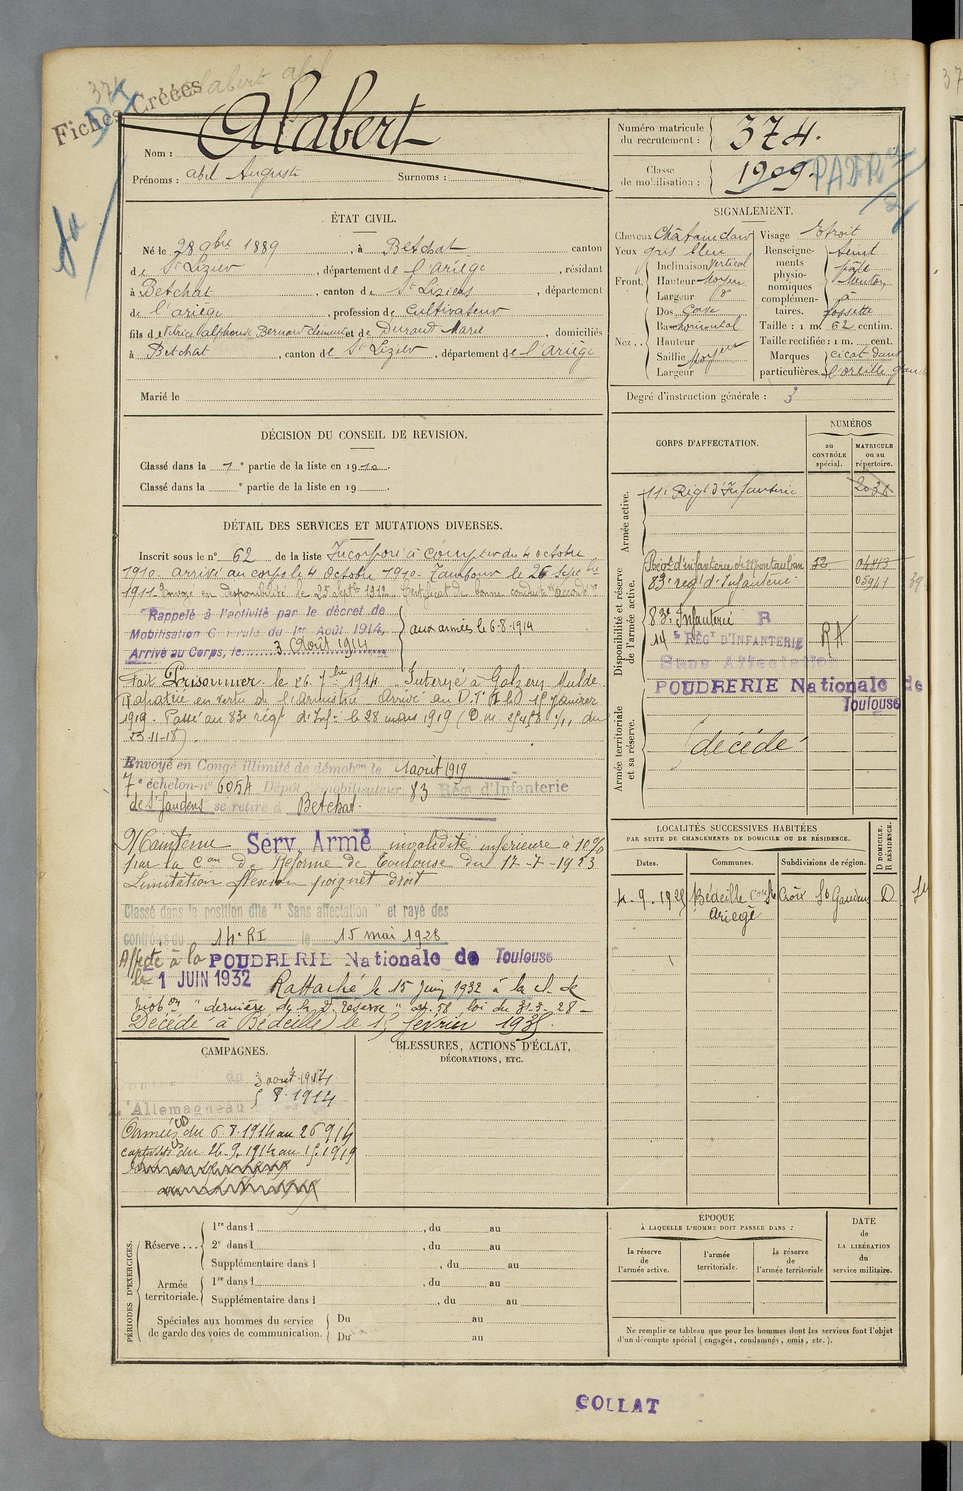 374
Fiches Créées
Alabert
Nom :
Prénoms : Abel Auguste Surnoms :
Numéro matricule du recrutement : 374.
Classe de mobilisation : 1909.
ÉTAT CIVIL.
Né le 28 9bre 1889, à Betchat canton
de St Lizier, département de l'Ariège, résidant
à Betchat, canton de St Liziers, département
de l'ariège, profession de Cultivateur
fils de Bernard Clément et de Durand Marie, domiciliés
à Betchat, canton de St Lizier, département de l'Ariège
Marié le
DÉCISION DU CONSEIL DE REVISION.
Classé dans la 1e partie de la liste en 1910.
Classé dans la e partie de la liste en 19
DÉTAIL DES SERVICES ET MUTATIONS DIVERSES.
Inscrit sous le n° 62 de la liste Incorporé à compter du 4 octobre
1910 arrivé au corps le 4 Octobre 1910. Tambour le 26 Septbre
1911 Envoyé en disponibilité le 25 Septbre 1912 Certificat de bonne conduite "accordé"
Rappelé à l'activité par le décret de
Mobilisation Générale du 1er Août 1914,
Arrivé au Corps, le 3 Août 1914
aux armées le 6-8-1914
Fait Prisonnier le 26. 7bre 1914. Interné à Golzern Mulde
Rapatrié en vertu de l'armistice arrivé au D.T. le 15 Janvier
1919. Passé au 83e régt d'Infie le 28 mars 1919
23-11-18).
Envoyé en Congé illimité de démobon le 1 aout 1919
7e échelon-n° 6054 Dépôt démobilisateur 83 Régt d'Infanterie
de St Gaudens se retire à Betchat.
Maintenu Serv Armé invalidité inférieure à 10%
par la Con de Réforme de Toulouse du 17-7-1923
Limitation flexion poignet droit
Classé dans la position dite "Sans affectation" et rayé des
contrôles du 14e RI le 15 mai 1928
Affecté à la POUDRERIE Nationale de Toulouse
le 1 JUIN 1932 Rattaché le 15 Juin 1932 à la cl. de
mobon "dernière de la 2e réserve" art. 58 loi du 31-3-28
Décédé à Bédeille le 15 février 1935.
CAMPAGNES.
du 3 août 1914
L'Allemagne au 5 8-1914
Armées du 6.8.1914 au 26 9 14
captivité du 26-9-1914 au 15.1.1919
BLESSURES, ACTIONS D'ÉCLAT,
DÉCORATIONS, ETC.
PÉRIODES D'EXERCICES.
Réserve ...
1re dans l , du au
2e dans l , du au
Supplémentaire dans l , du au
Armée territoriale.
1re dans l , du au
Supplémentaire dans l , du au
Spéciales aux hommes du service
de garde des voies de communication.
Du au
Du au
SIGNALEMENT.
Cheveux Châtain clair Visage Etroit
Yeux gris bleu
Front. Inclinaison Vertical
Hauteur Moyen
Largeur g
Nez.. Dos Cave
Base horizontal
Hauteur
Saillie Moyen
Largeur
Renseignements physionomiques complémentaires. teint pâle Menton à fossette
Taille : 1 m. 62 centim.
Taille rectifiée : 1 m. cent.
Marques particulières. cicat. dans l'oreille gauche
Degré d'instruction générale : 3
CORPS D'AFFECTATION.
NUMÉROS
au CONTRÔLE spécial.
MATRICULE ou au répertoire.
Armée active.
11e Régt d'Infanterie
Disponibilité et réserve de l'armée active.
Régt d'infanterie de Montauban
83e régt d'Infanterie. 05941
83e Infanterie R
14e RÉGT D'INFANTERIE RA
Sans Affectation
POUDRERIE Nationale de Toulouse
Armée territoriale et sa réserve.
décédé
LOCALITÉS SUCCESSIVES HABITÉES
PAR SUITE DE CHANGEMENTS DE DOMICILE OU DE RÉSIDENCE.
Dates. Communes. Subdivisions de région. D DOMICILE. R RÉSIDENCE.
4-9-1925 Bédeille Con Ste Croix Ariège St Gaudens D
ÉPOQUE
À LAQUELLE L'HOMME DOIT PASSER DANS :
la réserve de l'armée active.
l'armée territoriale.
la réserve de l'armée territoriale
DATE de LA LIBÉRATION du service militaire.
Ne remplir ce tableau que pour les hommes dont les services font l'objet
d'un décompte spécial (engagés, condamnés, omis, etc.).
COLLAT